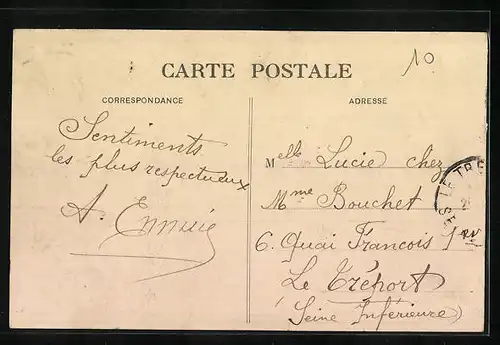 10
CARTE POSTALE
CORRESPONDANCE
ADRESSE
Sentiments
les plus respectueux
A.
Melle Lucie chez
Mme Bouchet
6. Quai Francois 1er
Le Tréport
(Seine Inférieure)
LE TRE